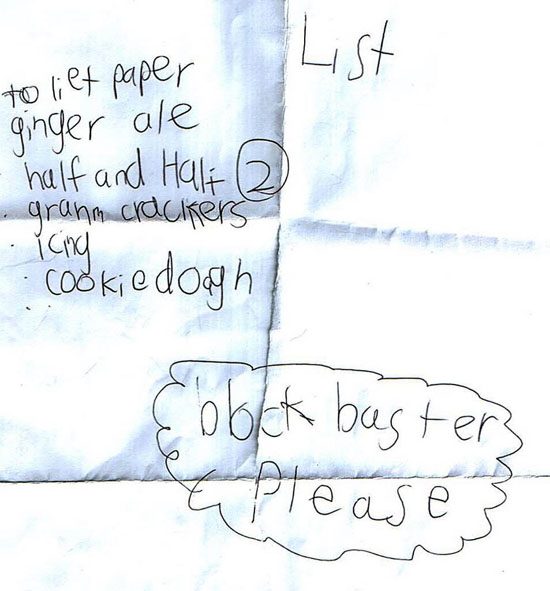 List
to liet paper
ginger ale
half and Half 2
granm crackers
icing
cookie doagh
block buster
Please